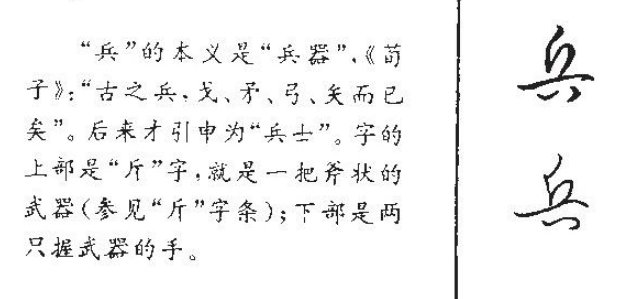 “兵”的本义是“兵器”,《荀
子》：“古之兵,戈、矛、弓、矢而已
矣”。后来才引申为“兵士”。字的
上部是“斤”字,就是一把斧状的
武器(参见“斤”字条);下部是两
只握武器的手。
兵
兵